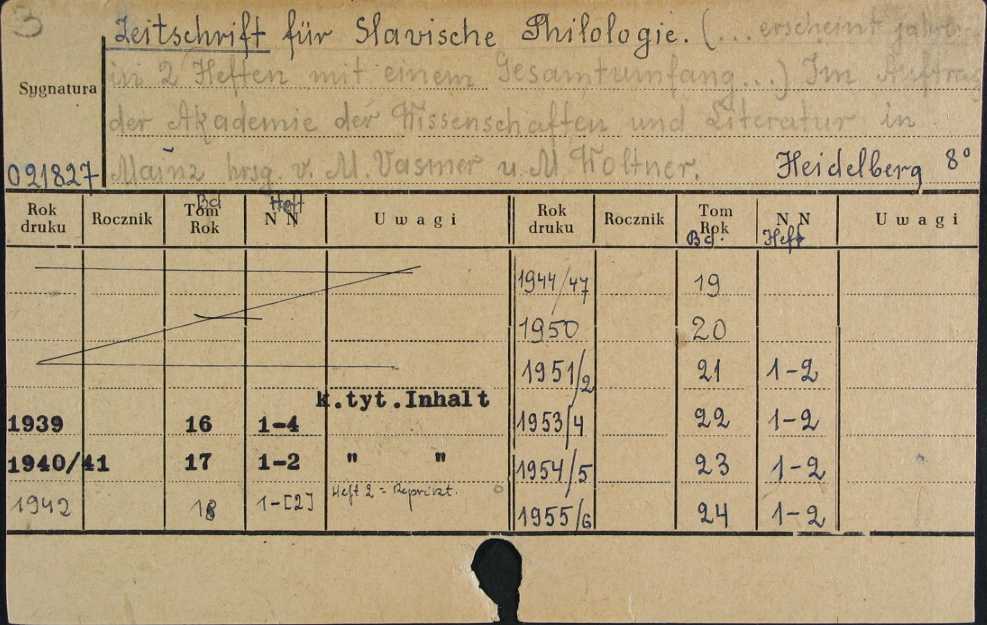 3
Zeitschrift für Slavische Philologie. (... erscheint jährl.
in 2 Heften mit einem Gesamtumfang...) Im Auftrag
Sygnatura
der Akademie der Wissenschaften und Literatur in
021827 Mainz hrsg. v. M. Vasmer u. M. Woltner. Heidelberg 8°
Rok druku Rocznik Tom Rok Bd N N Heft Uwagi Rok druku Rocznik Tom Rok Bd. N N Heft Uwagi
1944/47 19
1950 20
1951/2 21 1-2
k.tyt.Inhalt
1939 16 1-4 1953/4 22 1-2
1940/41 17 1-2 " " 1954/5 23 1-2
1942 18 1-[2] Heft 2 = Reprint. 1955/6 24 1-2